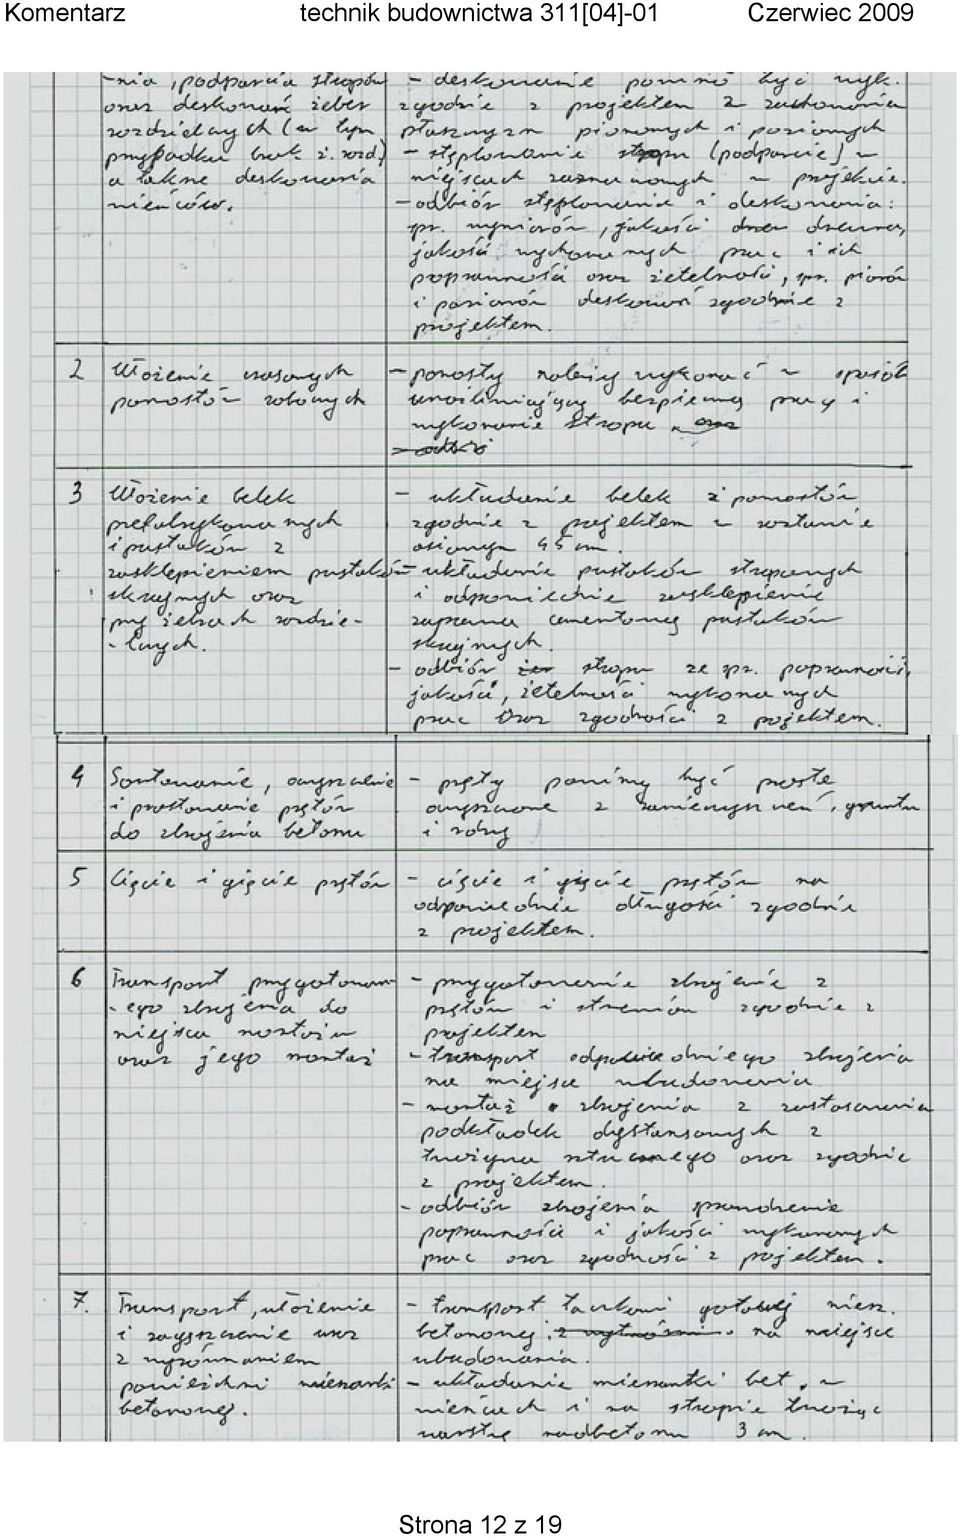 Komentarz technik budownictwa 311[04]-01 Czerwiec 2009
-nia, podparcia stropów
oraz deskowań żeber
rozdzielczych (w tym
przypadku brak ż. rozd)
a także deskowania
wieńców.
- deskowanie powinno być wyk.
zgodnie z projektem z zachowania
płaszczyzn pionowych i poziomych
- stęplowanie stropu (podparcie) w
miejscach zaznaczonych w projekcie.
- odbiór stęplowania i deskowania:
spr. wymiarów, jakości drewna,
jakości wykonanych prac i ich
poprawności oraz rzetelności, spr. pionów
i poziomów deskowań zgodnie z
projektem.
2 Ułożenie czasowych
pomostów roboczych
- pomosty należy wykonać w sposób
umożliwiający bezpiecznej pracy i
wykonanie stropu
3 Ułożenie belek
prefabrykowanych
i pustaków z
zasklepieniem pustaków
skrajnych oraz
przy żebrach rozdzie-
-lczych.
- układanie belek z pomostów
zgodnie z projektem w rozstawie
osiowym 45 cm.
- układanie pustaków stropowych
i odpowiednie zasklepienie
zaprawą cementową pustaków
skrajnych.
- odbiór stropu ze spr. poprawności,
jakości, rzetelności wykonanych
prac oraz zgodności z projektem.
4 Sortowanie, czyszczenie
i prostowanie prętów
do zbrojenia betonu
- pręty powinny być proste
oczyszczone z zanieczyszczeń, gruntu
i rdzy
5 Cięcie i gięcie prętów
- cięcie i gięcie prętów na
odpowiednie długości zgodnie
z projektem.
6 Transport przygotowan-
-ego zbrojenia do
miejsca montażu
oraz jego montaż
- przygotowanie zbrojenie z
prętów i strzemion zgodnie z
projektem
- transport odpowiedniego zbrojenia
na miejsce wbudowania
- montaż zbrojenia z zastosowania
podkładek dystansowych z
tworzywa sztucznego oraz zgodnie
z projektem.
- odbiór zbrojenia sprawdzenie
poprawności i jakości wykonanych
prac oraz zgodności z projektem.
7. Transport, ułożenie
i zagęszczenie wraz
z wyrównaniem
powierzchni mieszanki
betonowej.
- transport taczkami gotowej miesz.
betonowej, na miejsce
wbudowania.
- układanie mieszanki bet. w
wieńcach i na stropie tworząc
warstwę nadbetonu 3 cm.
Strona 12 z 19